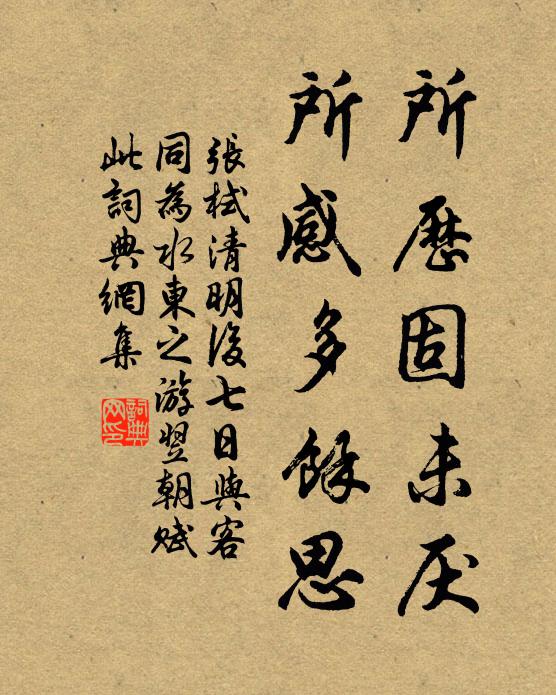 所歷固未厌
所感多餘思
張栻清明後七日與客
同為水東之游翌朝賦
此詞典網集
詞典网印